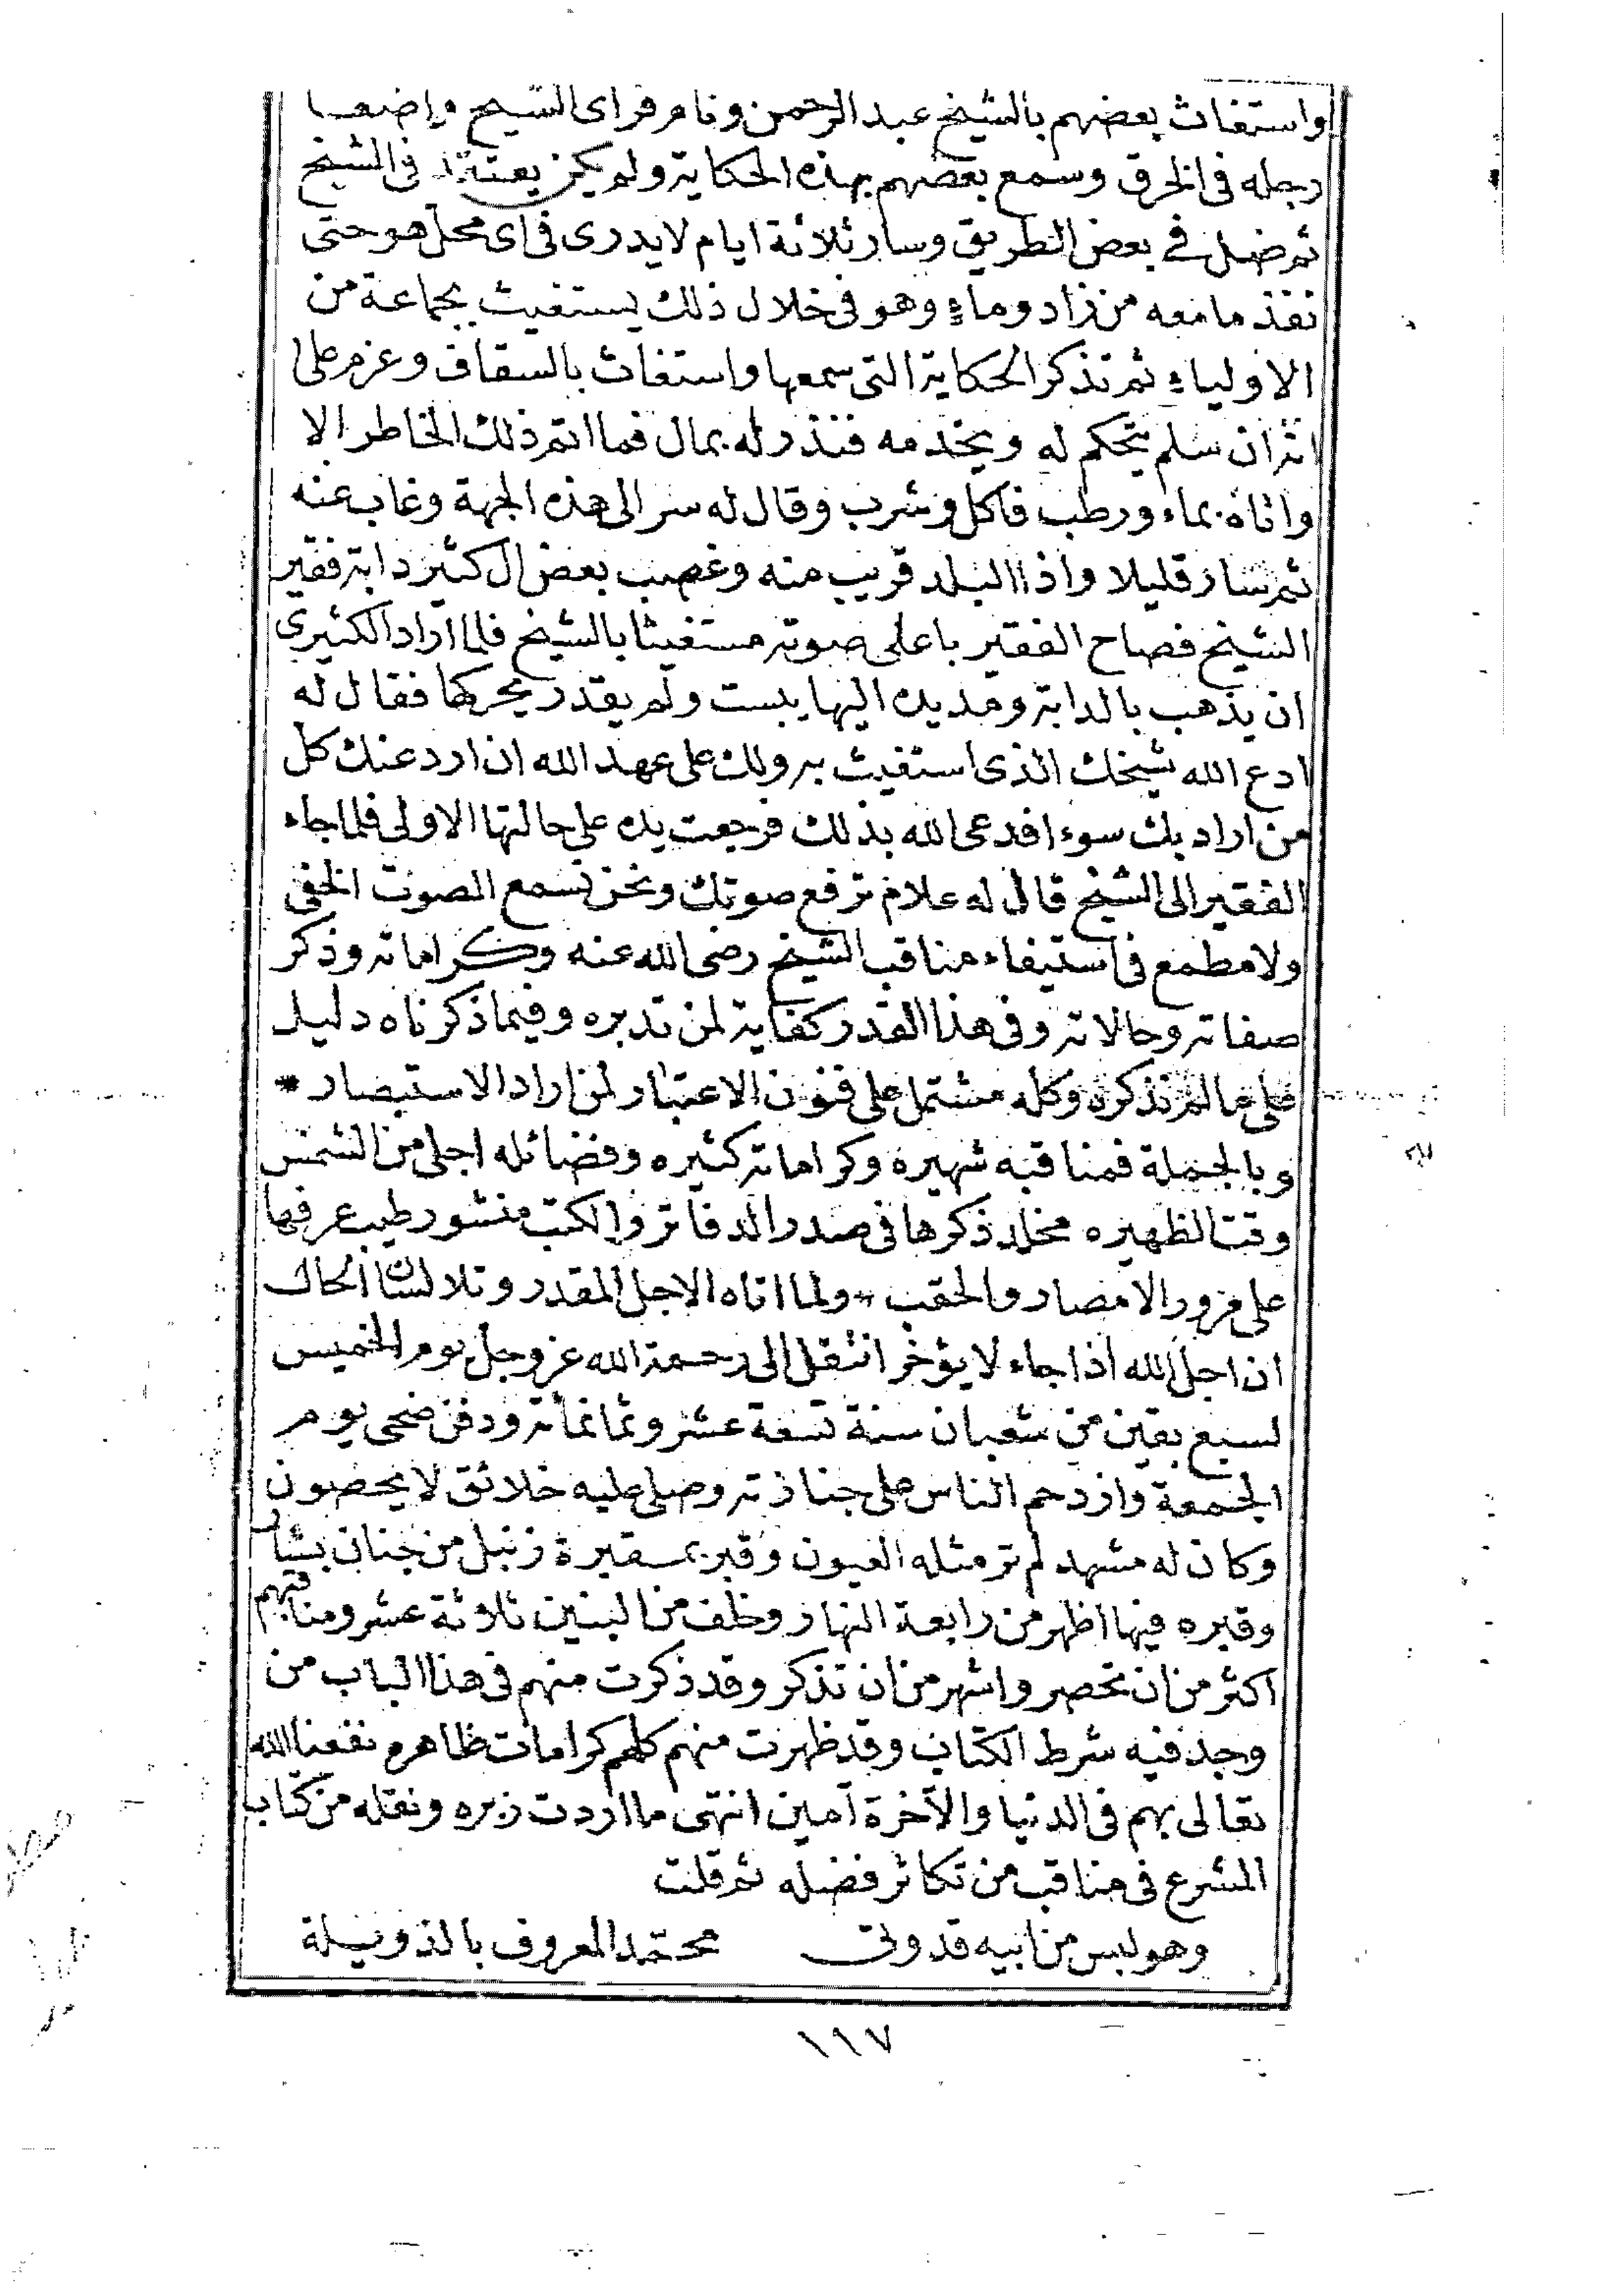 واستغاث بعضهم بالشيخ عبد الرحمن ونام فراى الشيخ واضعا
رجله فى الخرق وسمع بعضهم بهذه الحكاية ولم يكن يعتقد فى الشيخ
ثم ضل في بعض الطريق وسار ثلاثة ايام لا يدرى فى اى محل هو حتى
نفذ ما معه من زاد وماء وهو فى خلال ذلك يستغيث بجماعة من
الاولياء ثم تذكر الحكاية التى سمعها واستغاث بالسقاف وعزم على
انه ان سلم يتحكم له ويخدمه فنذر له بمال فما اتم ذلك الخاطر الا
واتاه بماء ورطب فاكل وشرب وقال له سر الى هذه الجهة وغاب عنه
ثم سار قليلا واذا البلد قريب منه وغصب بعض ال كثير دابة فقير
الشيخ فصاح الفقير باعلى صوته مستغيثا بالشيخ فلما اراد الكثيرى
ان يذهب بالدابة ومد يده اليها يبست ولم يقدر يحركها فقال له
ادع الله شيخك الذى استغيث به ولك على عهد الله ان ارد عنك كل
من اراد بك سوءا فدعى الله بذلك فرجعت يده على حالتها الاولى فلما جاء
الفقير الى الشيخ قال له علام ترفع صوتك ونحن نسمع الصوت الخفى
ولا مطمع فى استيفاء مناقب الشيخ رضى الله عنه وكراماته وذكر
صفاته وحالاته وفى هذا القدر كفاية لمن تدبره وفيما ذكرناه دليل
على ما لم نذكره وكله مشتمل على فنون الاعتبار لمن اراد الاستبصار *
وبالجملة فمناقبه شهيره وكراماته كثيره وفضائله اجلى من الشمس
وقت الظهيره مخلد ذكرها فى صدر الدفاتر والكتب منشور طيب عرفها
على مرور الامصار والحقب * ولما اتاه الاجل المقدر وتلا لسان الحال
ان اجل الله اذا جاء لا يؤخر انتقل الى رحمة الله عز وجل يوم الخميس
لسبع بقين من شعبان سنة تسعة عشر وثمانمائة ودفن ضحى يوم
الجمعة وازدحم الناس على جنازته وصلى عليه خلائق لا يحصون
وكان له مشهد لم تر مثله العيون وقبر بمقبرة زنبل من جنان بشار
وقبره فيها اظهر من رابعة النهار وخلف من البنين ثلاثة عشر ومناقبهم
اكثر من ان تحصر واشهر من ان تذكر وقد ذكرت منهم فى هذا الباب من
وجد فيه شرط الكتاب وقد ظهرت منهم كلهم كرامات ظاهره نفعنا الله
تعالى بهم فى الدنيا والآخرة آمين انتهى ما اردت زبره ونقله من كتاب
المشرع فى مناقب من تكاثر فضله ثم قلت
وهو لبس من ابيه قدوتى محمد المعروف بالذويلة
١١٧